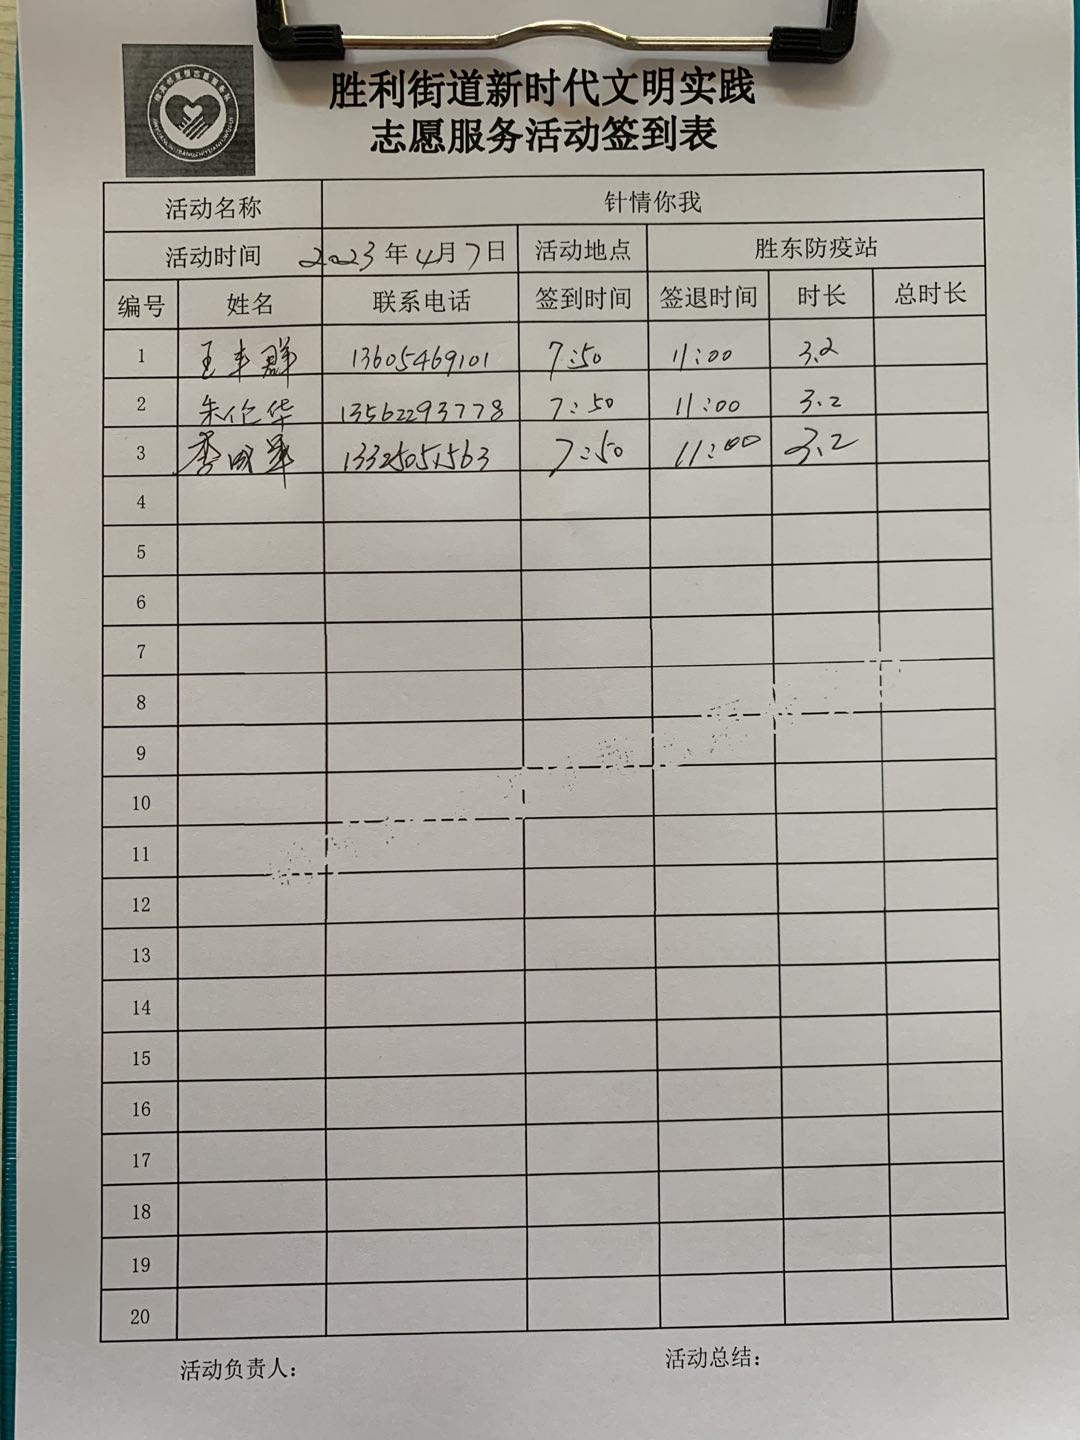 胜利街道新时代文明实践
志愿服务活动签到表
活动名称 针情你我
活动时间 2023年4月7日 活动地点 胜东防疫站
编号 姓名 联系电话 签到时间 签退时间 时长 总时长
1 王丰群 13605469101 7:50 11:00 3.2
2 朱伦华 13562293778 7:50 11:00 3.2
3 13325051563 7:50 11:00 3.2
4
5
6
7
8
9
10
11
12
13
14
15
16
17
18
19
20
活动负责人: 活动总结: